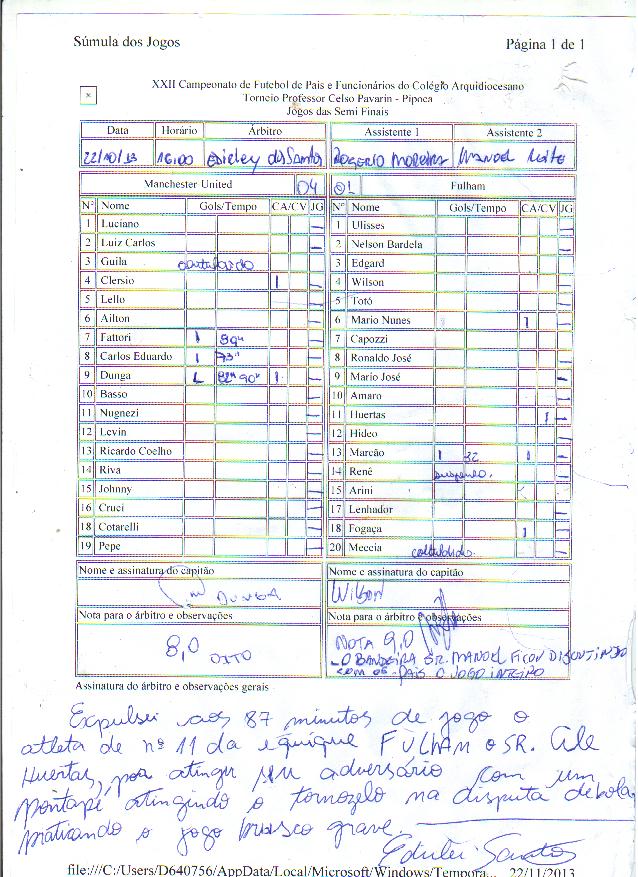 Súmula dos Jogos Página 1 de 1
XXII Campeonato de Futebol de Pais e Funcionários do Colégio Arquidiocesano
Torneio Professor Celso Pavarin - Pipoca
Jogos das Semi Finais
Data Horário Árbitro Assistente 1 Assistente 2
22/10/13 16:00 Edicley dos Santos Rogerio Moreira Manoel
Manchester United 04 01 Fulham
Nº Nome Gols/Tempo CA/CV JG Nº Nome Gols/Tempo CA/CV JG
1 Luciano — 1 Ulisses —
2 Luiz Carlos — 2 Nelson Bardela —
3 Guila 3 Edgard —
4 Clersio 1 — 4 Wilson —
5 Lello — 5 Totó —
6 Ailton — 6 Mario Nunes 1 —
7 Fattori 1 89" — 7 Capozzi —
8 Carlos Eduardo 1 73" — 8 Ronaldo José —
9 Dunga L 82" 90" 1 — 9 Mario José —
10 Basso — 10 Amaro —
11 Nugnezi — 11 Huertas 1 —
12 Levin — 12 Hideo —
13 Ricardo Coelho — 13 Marcão 1 32 1 —
14 Riva — 14 Renê suspenso.
15 Johnny — 15 Arini —
16 Cruci — 17 Lenhador —
18 Cotarelli — 18 Fogaça 1 —
19 Pepe — 20 Meccia
Nome e assinatura do capitão Nome e assinatura do capitão
Dunga Wilson
Nota para o árbitro e observações Nota para o árbitro e observações
8,0 OITO NOTA 9,0
- O BANDEIRA SR. MANOEL FICOU DISCUTINDO
COM OS PAIS O JOGO INTEIRO
Assinatura do árbitro e observações gerais
Expulsei aos 87 minutos de jogo o
atleta de nº 11 da equique FULHAM o SR.
Huertas, por atingir seu adversário com um
pontapé atingindo o tornozelo na disputa de bola
praticando o jogo brusco grave.
Santos
file:///C:/Users/D640756/AppData/Local/Microsoft/Windows/Tempora... 22/11/2013